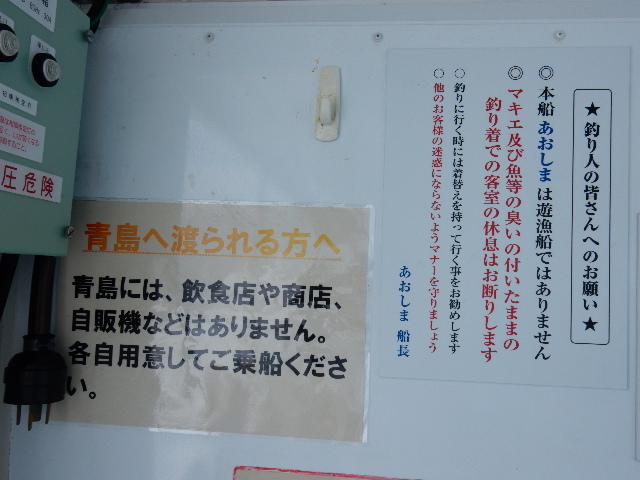 ★ 釣り人の皆さんへのお願い ★
◎ 本船 あおしま は遊漁船ではありません
◎ マキエ及び魚等の臭いの付いたままの
釣り着での客室の休息はお断りします
○ 釣りに行く時には着替えを持って行く事をお勧めします
○ 他のお客様の迷惑にならないようマナーを守りましょう
あおしま 船長
青島へ渡られる方へ
青島には、飲食店や商店、
自販機などはありません。
各自用意してご乗船くださ
い。
圧危険